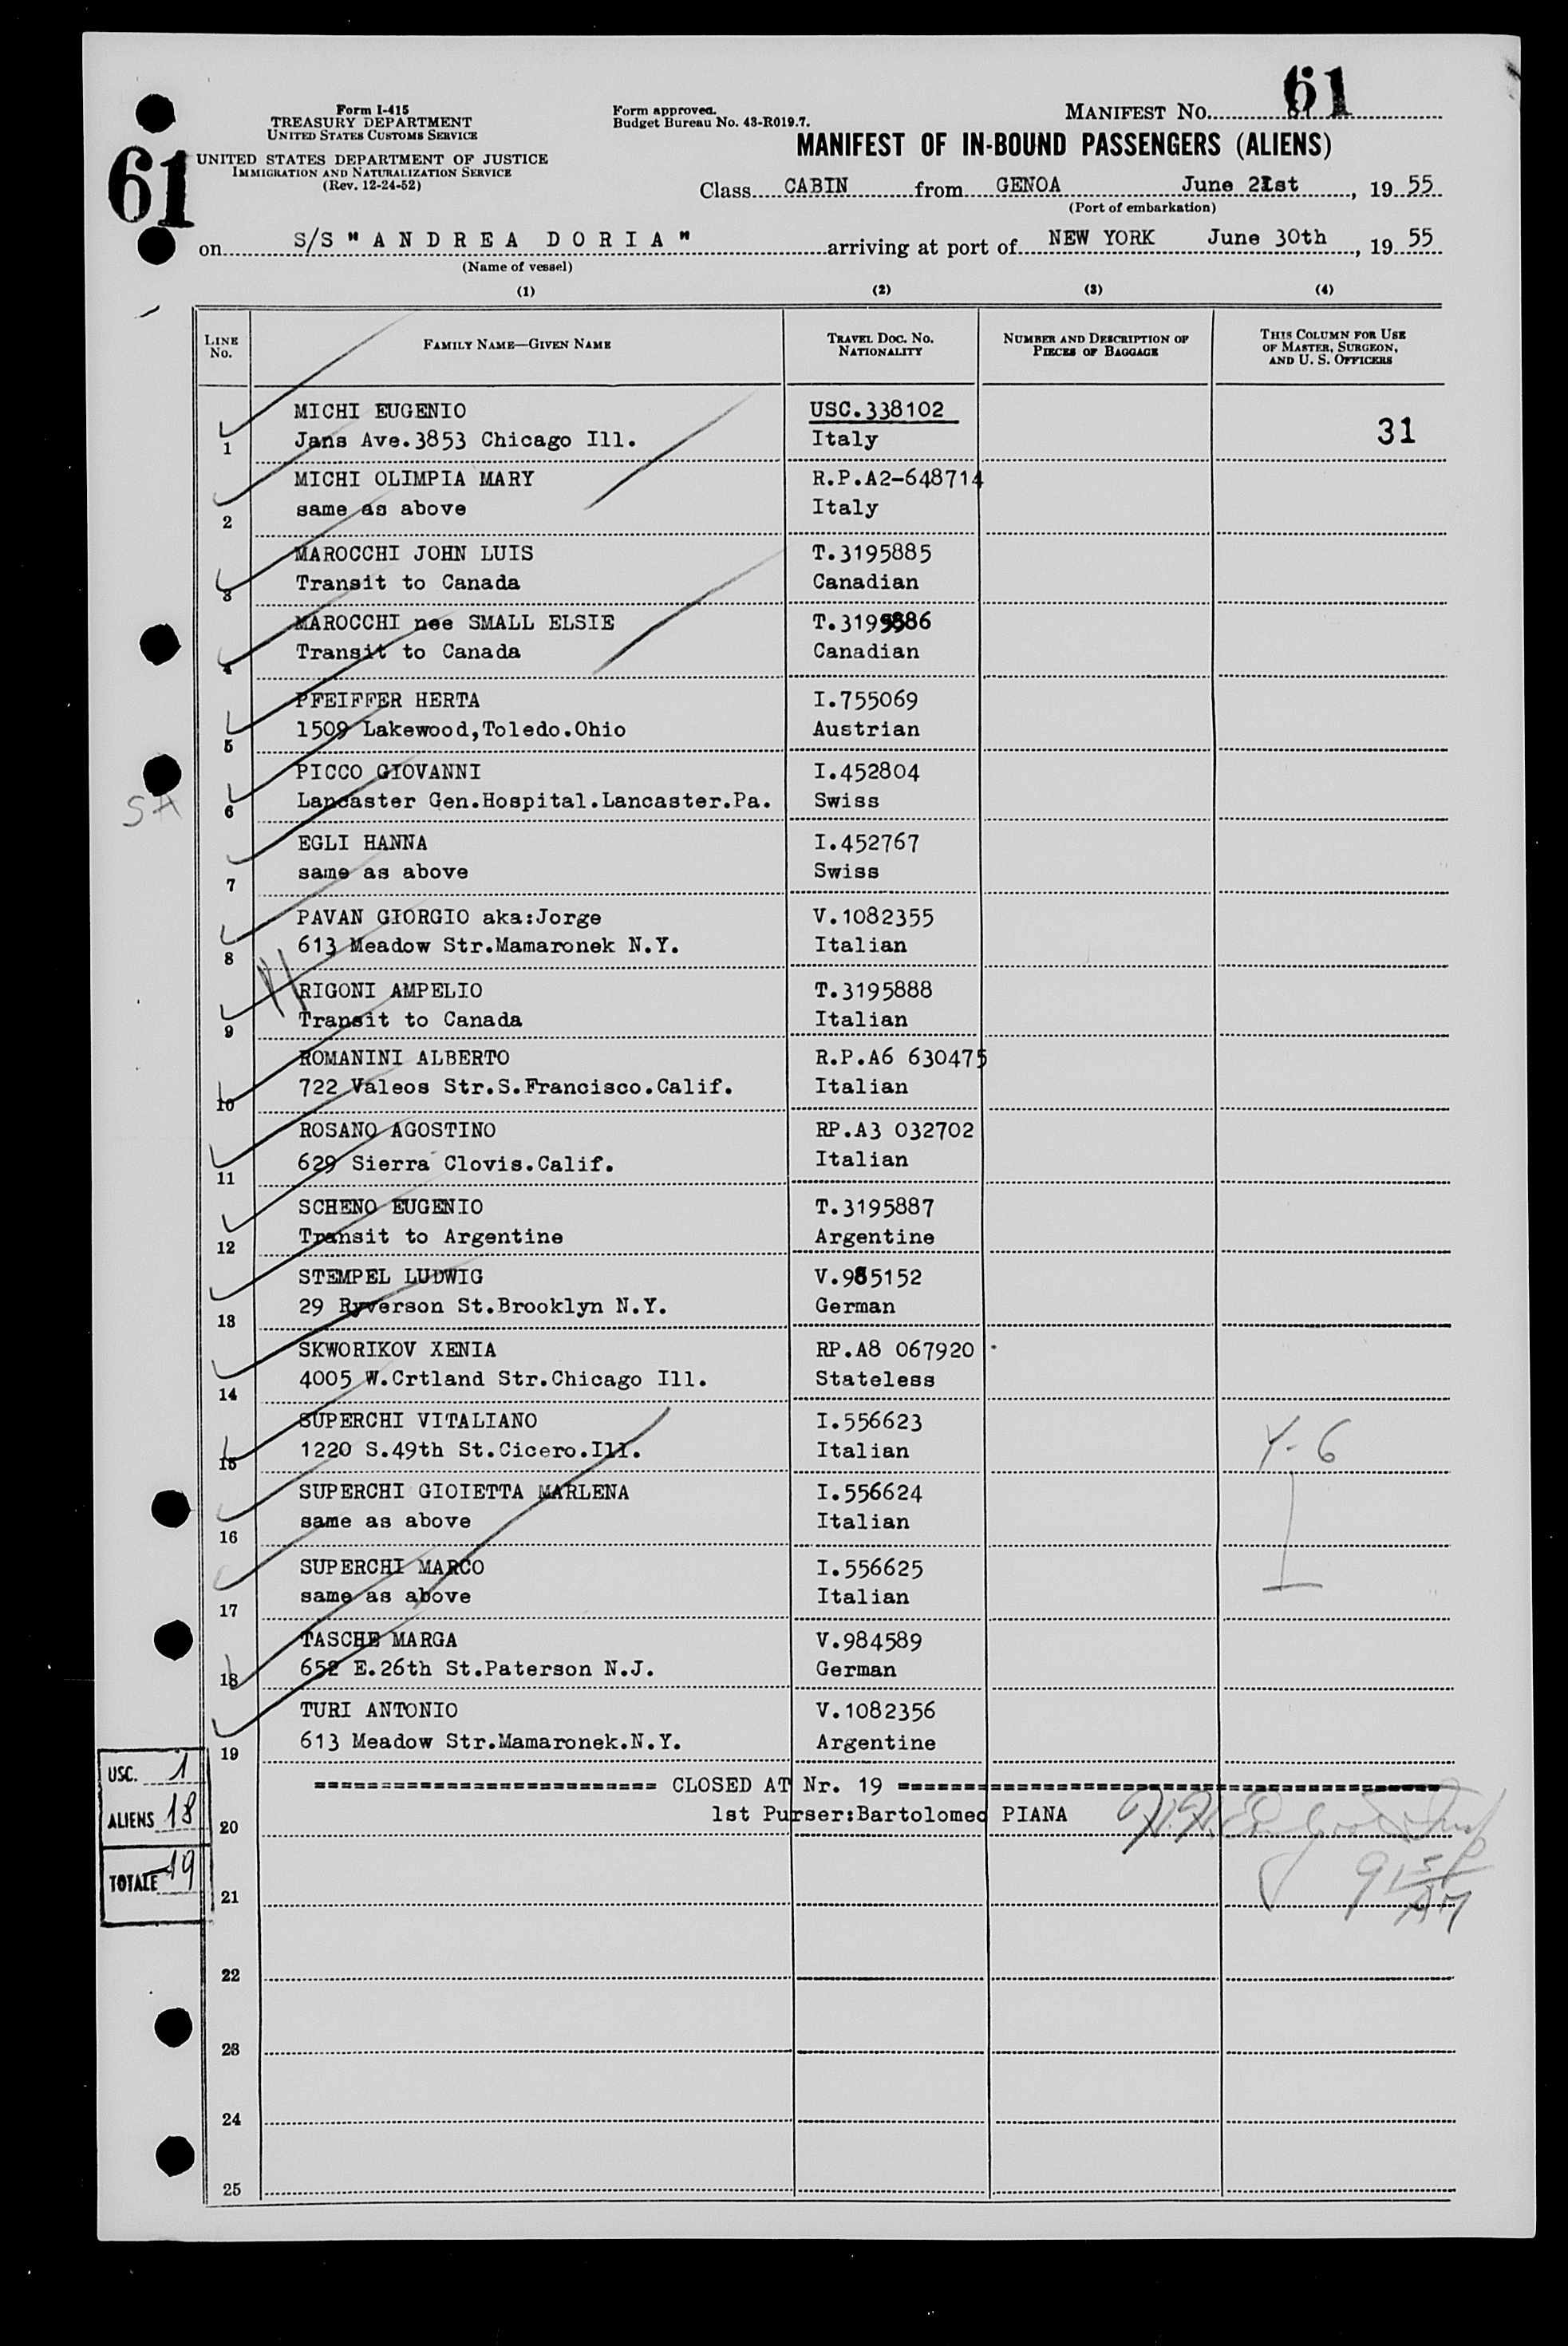 61
Form I-415
TREASURY DEPARTMENT
UNITED STATES CUSTOMS SERVICE
UNITED STATES DEPARTMENT OF JUSTICE
IMMIGRATION AND NATURALIZATION SERVICE
(Rev. 12-24-52)
Form approved.
Budget Bureau No. 43-R019.7.
MANIFEST No. 61
MANIFEST OF IN-BOUND PASSENGERS (ALIENS)
Class CABIN from GENOA June 21st, 19 55
(Port of embarkation)
on S/S "ANDREA DORIA" arriving at port of NEW YORK June 30th, 19 55
(Name of vessel)
(1) (2) (3) (4)
LINE No. FAMILY NAME—GIVEN NAME TRAVEL DOC. No. NATIONALITY NUMBER AND DESCRIPTION OF PIECES OF BAGGAGE THIS COLUMN FOR USE OF MASTER, SURGEON, AND U. S. OFFICERS
MICHI EUGENIO USC.338102
1 Jans Ave.3853 Chicago Ill. Italy 31
MICHI OLIMPIA MARY R.P.A2-648714
2 same as above Italy
MAROCCHI JOHN LUIS T.3195885
3 Transit to Canada Canadian
MAROCCHI nee SMALL ELSIE T.3195886
4 Transit to Canada Canadian
PFEIFFER HERTA I.755069
5 1509 Lakewood,Toledo.Ohio Austrian
PICCO GIOVANNI I.452804
SA 6 Lancaster Gen.Hospital.Lancaster.Pa. Swiss
EGLI HANNA I.452767
7 same as above Swiss
PAVAN GIORGIO aka:Jorge V.1082355
8 613 Meadow Str.Mamaronek N.Y. Italian
RIGONI AMPELIO T.3195888
9 Transit to Canada Italian
ROMANINI ALBERTO R.P.A6 630475
10 722 Valeos Str.S.Francisco.Calif. Italian
ROSANO AGOSTINO RP.A3 032702
11 629 Sierra Clovis.Calif. Italian
SCHENO EUGENIO T.3195887
12 Transit to Argentine Argentine
STEMPEL LUDWIG V.985152
13 29 Ryverson St.Brooklyn N.Y. German
SKWORIKOV XENIA RP.A8 067920
14 4005 W.Crtland Str.Chicago Ill. Stateless
SUPERCHI VITALIANO I.556623
15 1220 S.49th St.Cicero.Ill. Italian Y-6
SUPERCHI GIOIETTA MARLENA I.556624
16 same as above Italian
SUPERCHI MARCO I.556625
17 same as above Italian
TASCHE MARGA V.984589
18 652 E.26th St.Paterson N.J. German
TURI ANTONIO V.1082356
19 613 Meadow Str.Mamaronek.N.Y. Argentine
USC. 1
========================== CLOSED AT Nr. 19 ==========================
ALIENS 18
20 1st Purser:Bartolomeo PIANA
TOTALE 19
21
22
23
24
25